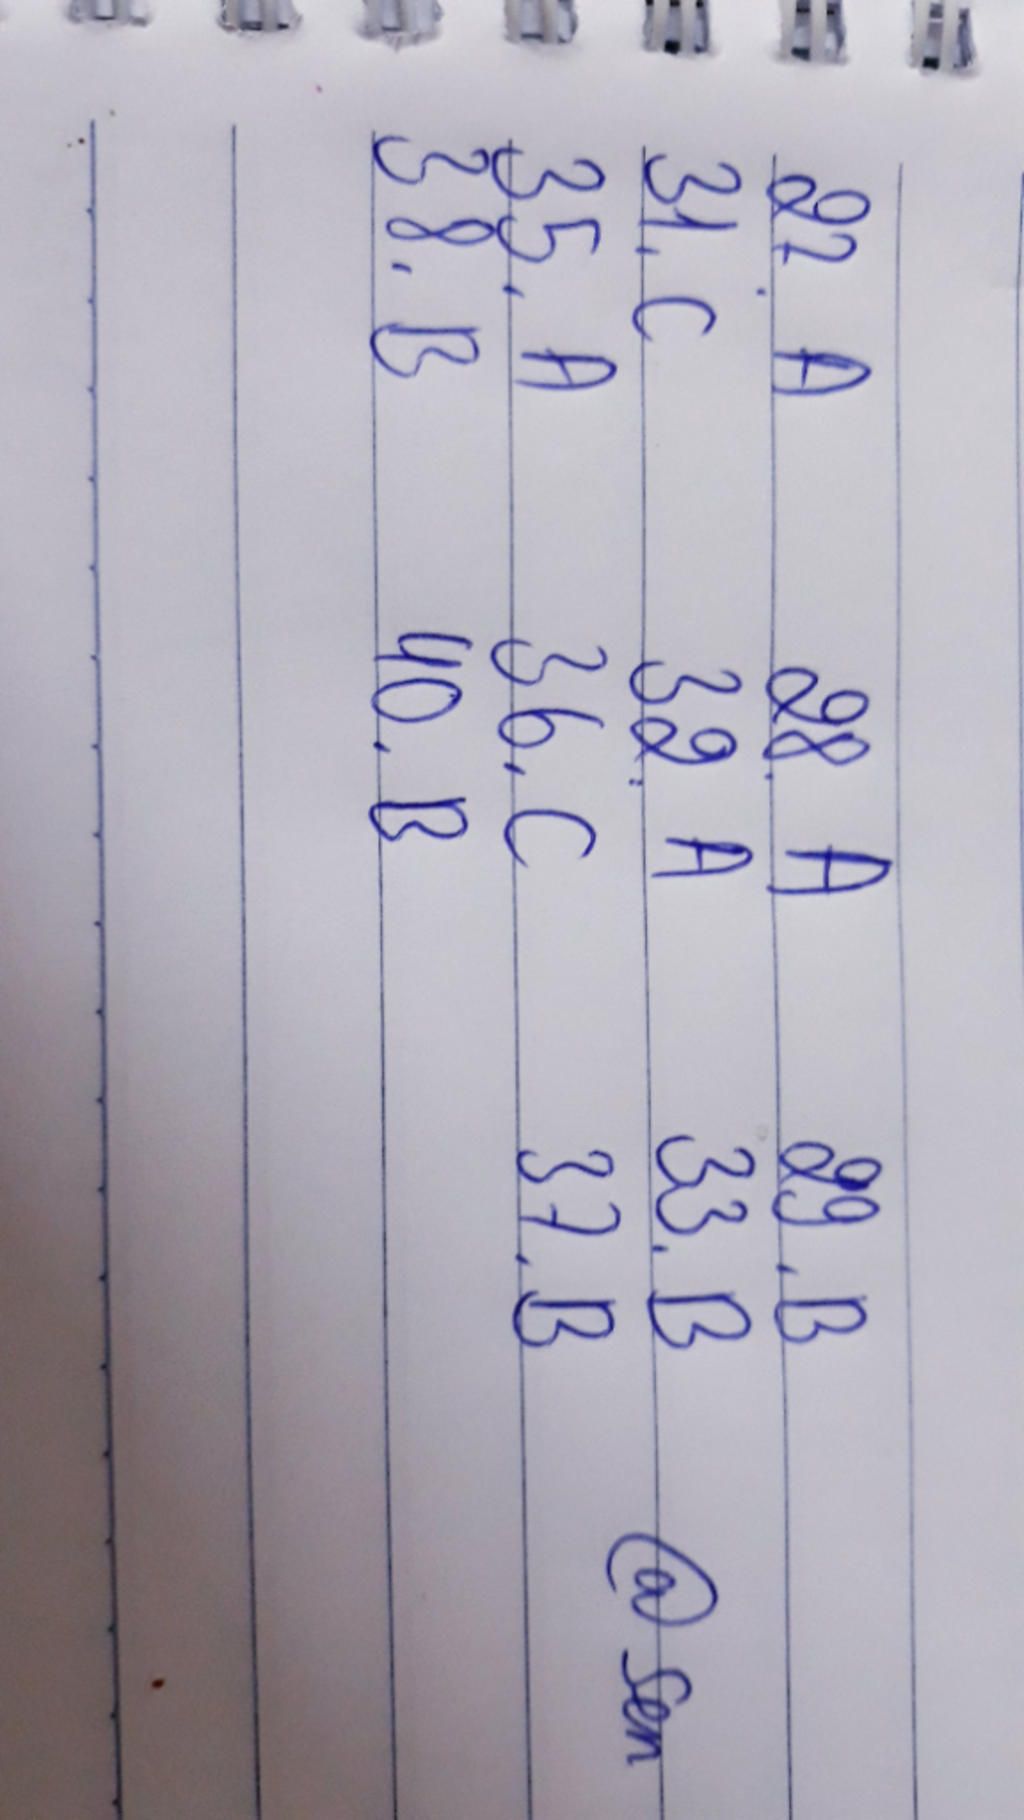 27. A 28. A 29. B
31. C 32. A 33. B
35. A 36. C 37. B
38. B 40. B
@ Sen